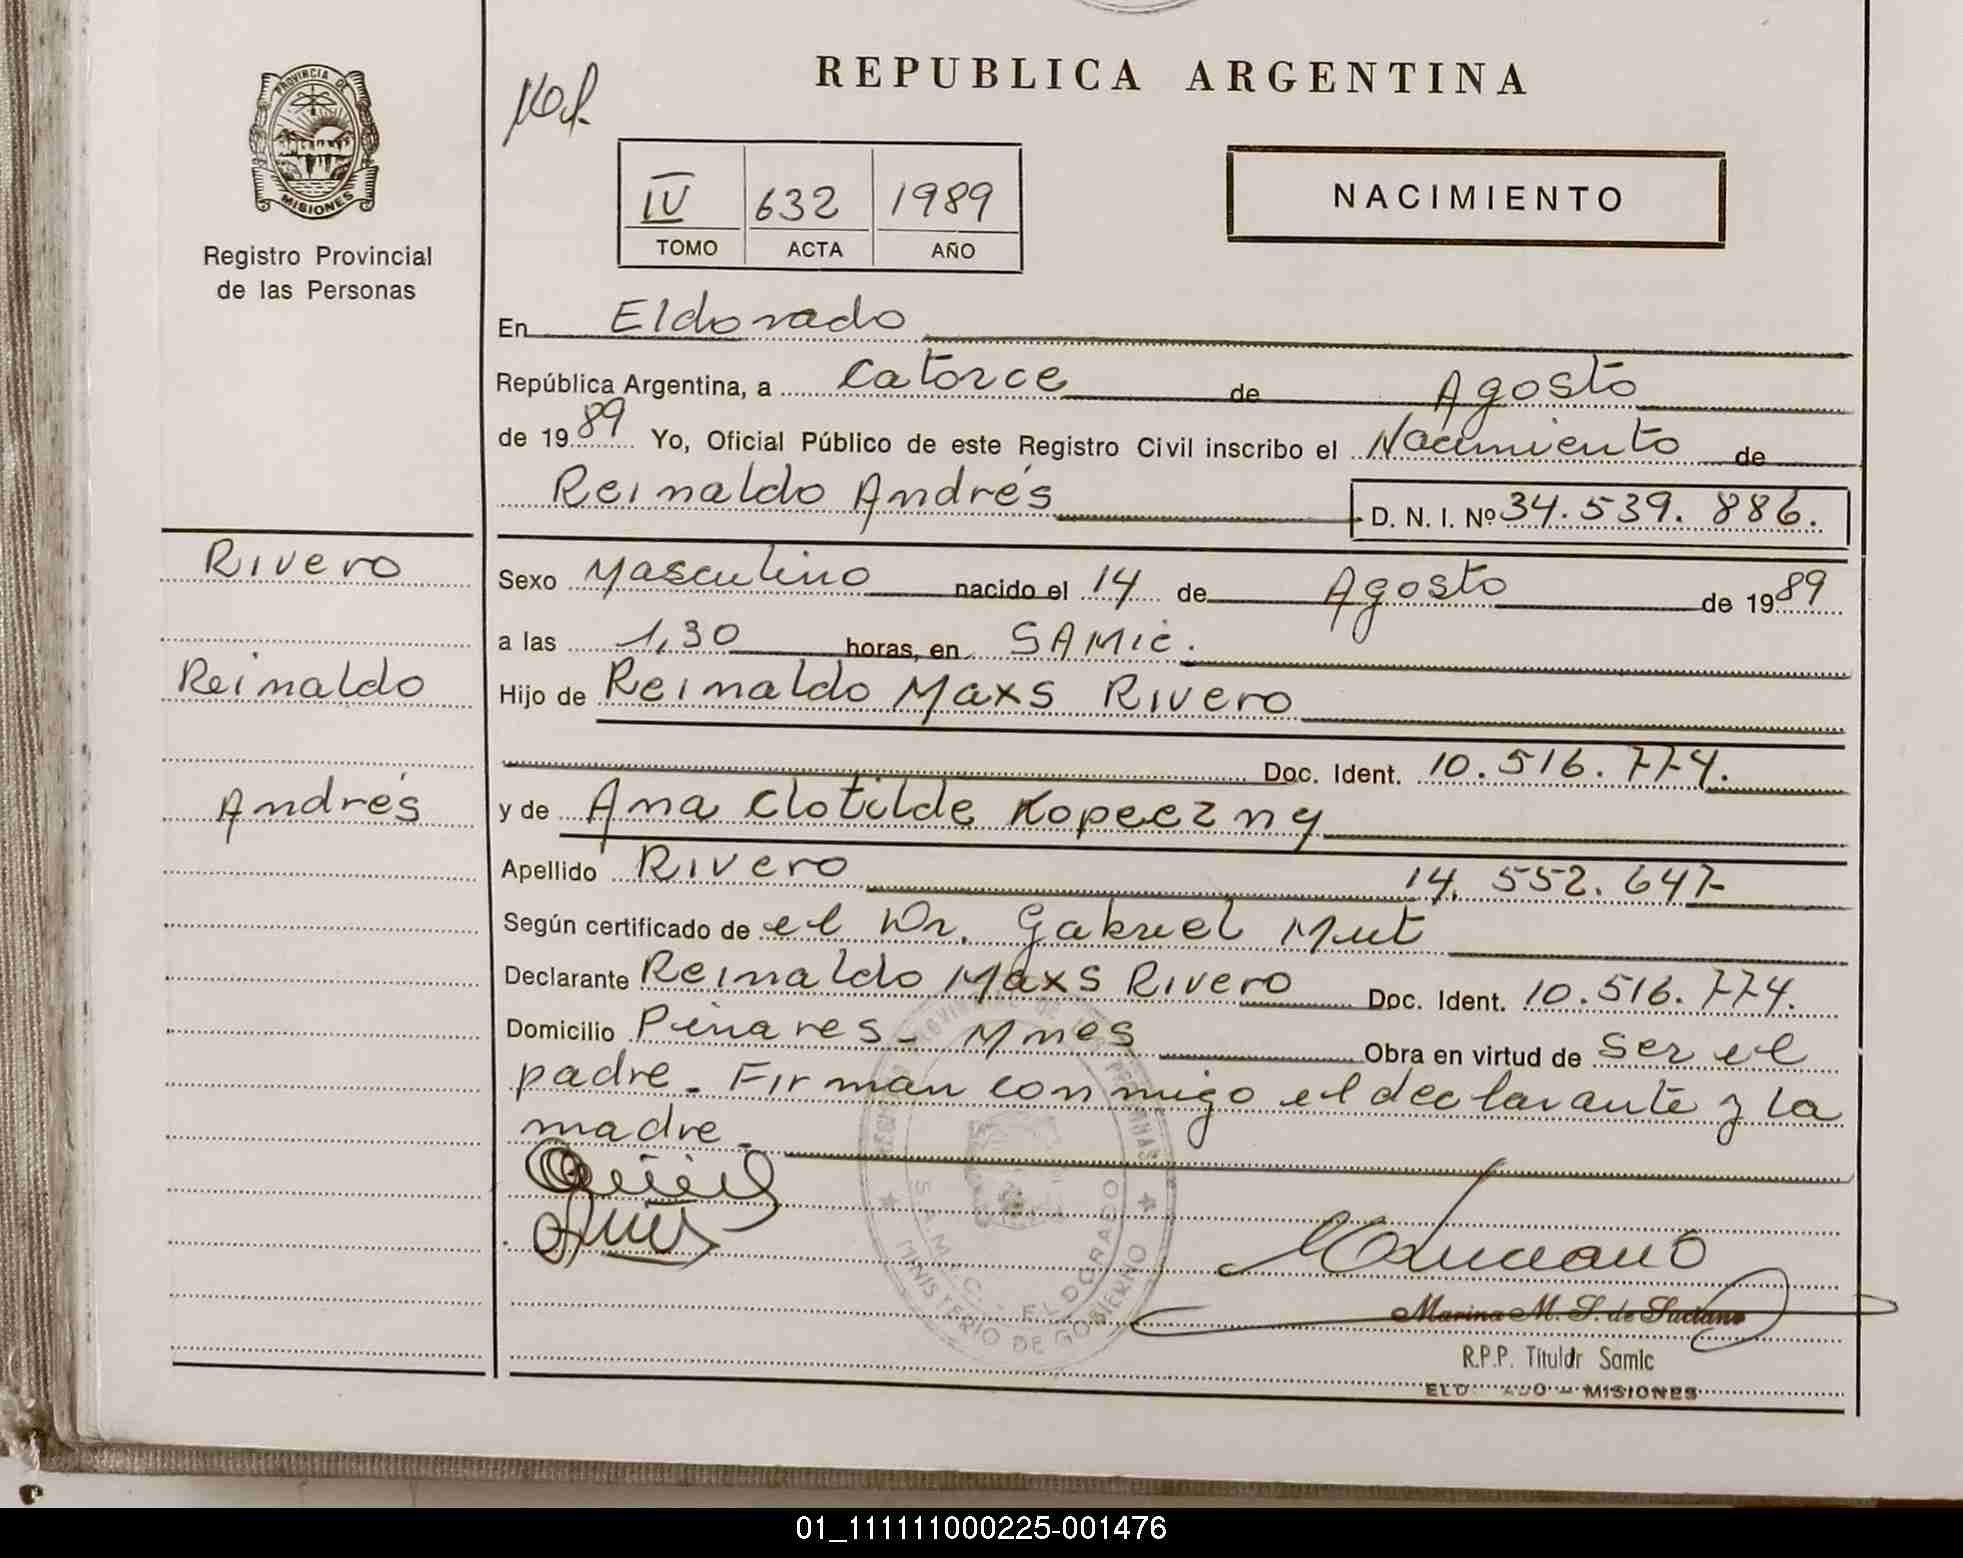 REPUBLICA ARGENTINA
PROVINCIA DE
MISIONES
Registro Provincial
de las Personas
IV 632 1989
TOMO ACTA AÑO
NACIMIENTO
En Eldorado
República Argentina, a Catorce de Agosto
de 1989 Yo, Oficial Público de este Registro Civil inscribo el Nacimiento de
Reinaldo Andrés D. N. I. Nº 34.539.886.
Rivero
Reinaldo
Andrés
Sexo Masculino nacido el 14 de Agosto de 1989
a las 1,30 horas, en SAMIC.
Hijo de Reinaldo Maxs Rivero
Doc. Ident. 10.516.774.
y de Ana Clotilde Kopeczny
Apellido Rivero 14.552.647-
Según certificado de el Dr. Gabriel Mut
Declarante Reinaldo Maxs Rivero Doc. Ident. 10.516.774.
Domicilio Pinares - Mnes Obra en virtud de ser el
padre - Firman conmigo el declarante y la
madre -
S.A.M.I.C. - ELDORADO
MINISTERIO DE GOBIERNO
Marina M. S. de Luciano
R.P.P. Titular Samic
ELDORADO - MISIONES
01_111111000225-001476